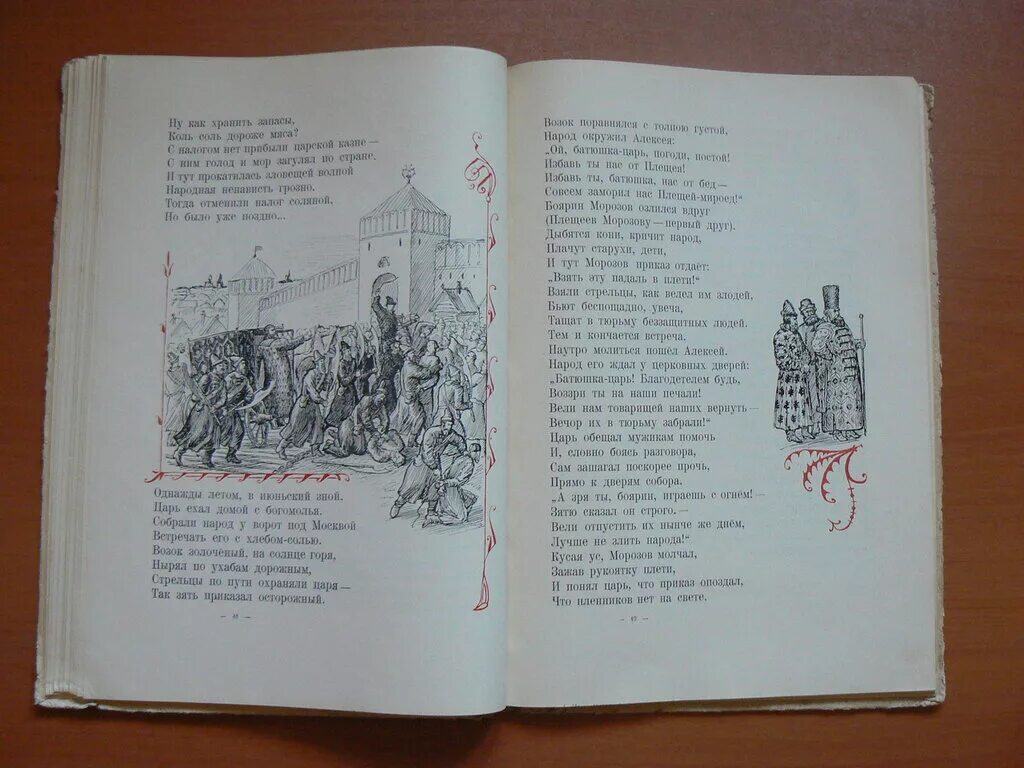 Ну как хранить запасы,
Коль соль дороже мяса?
С налогом нет прибыли царской казне —
С ним голод и мор загулял по стране,
И тут прокатилась зловещей волной
Народная ненависть грозно.
Тогда отменили налог соляной,
Но было уже поздно...
Однажды летом, в июньский зной.
Царь ехал домой с богомолья.
Собрали народ у ворот под Москвой
Встречать его с хлебом-солью.
Возок золочёный, на солнце горя,
Нырял по ухабам дорожным,
Стрельцы по пути охраняли царя —
Так зять приказал осторожный.
— 48 —
Возок поравнялся с толпою густой,
Народ окружил Алексея:
„Ой, батюшка-царь, погоди, постой!
Избавь ты нас от Плещея!
Избавь ты, батюшка, нас от бед —
Совсем заморил нас Плещей-мироед!“
Боярин Морозов озлился вдруг
(Плещеев Морозову — первый друг).
Дыбятся кони, кричит народ,
Плачут старухи, дети,
И тут Морозов приказ отдаёт:
„Взять эту падаль в плети!“
Взяли стрельцы, как велел им злодей,
Бьют беспощадно, увеча,
Тащат в тюрьму беззащитных людей.
Тем и кончается встреча.
Наутро молиться пошёл Алексей.
Народ его ждал у церковных дверей:
„Батюшка-царь! Благодетелем будь,
Воззри ты на наши печали!
Вели нам товарищей наших вернуть —
Вечор их в тюрьму забрали!“
Царь обещал мужикам помочь
И, словно боясь разговора,
Сам зашагал поскорее прочь,
Прямо к дверям собора.
„А зря ты, боярин, играешь с огнём! —
Зятю сказал он строго. —
Вели отпустить их нынче же днём,
Лучше не злить народа!“
Кусая ус, Морозов молчал,
Зажав рукоятку плети,
И понял царь, что приказ опоздал,
Что пленников нет на свете.
— 49 —